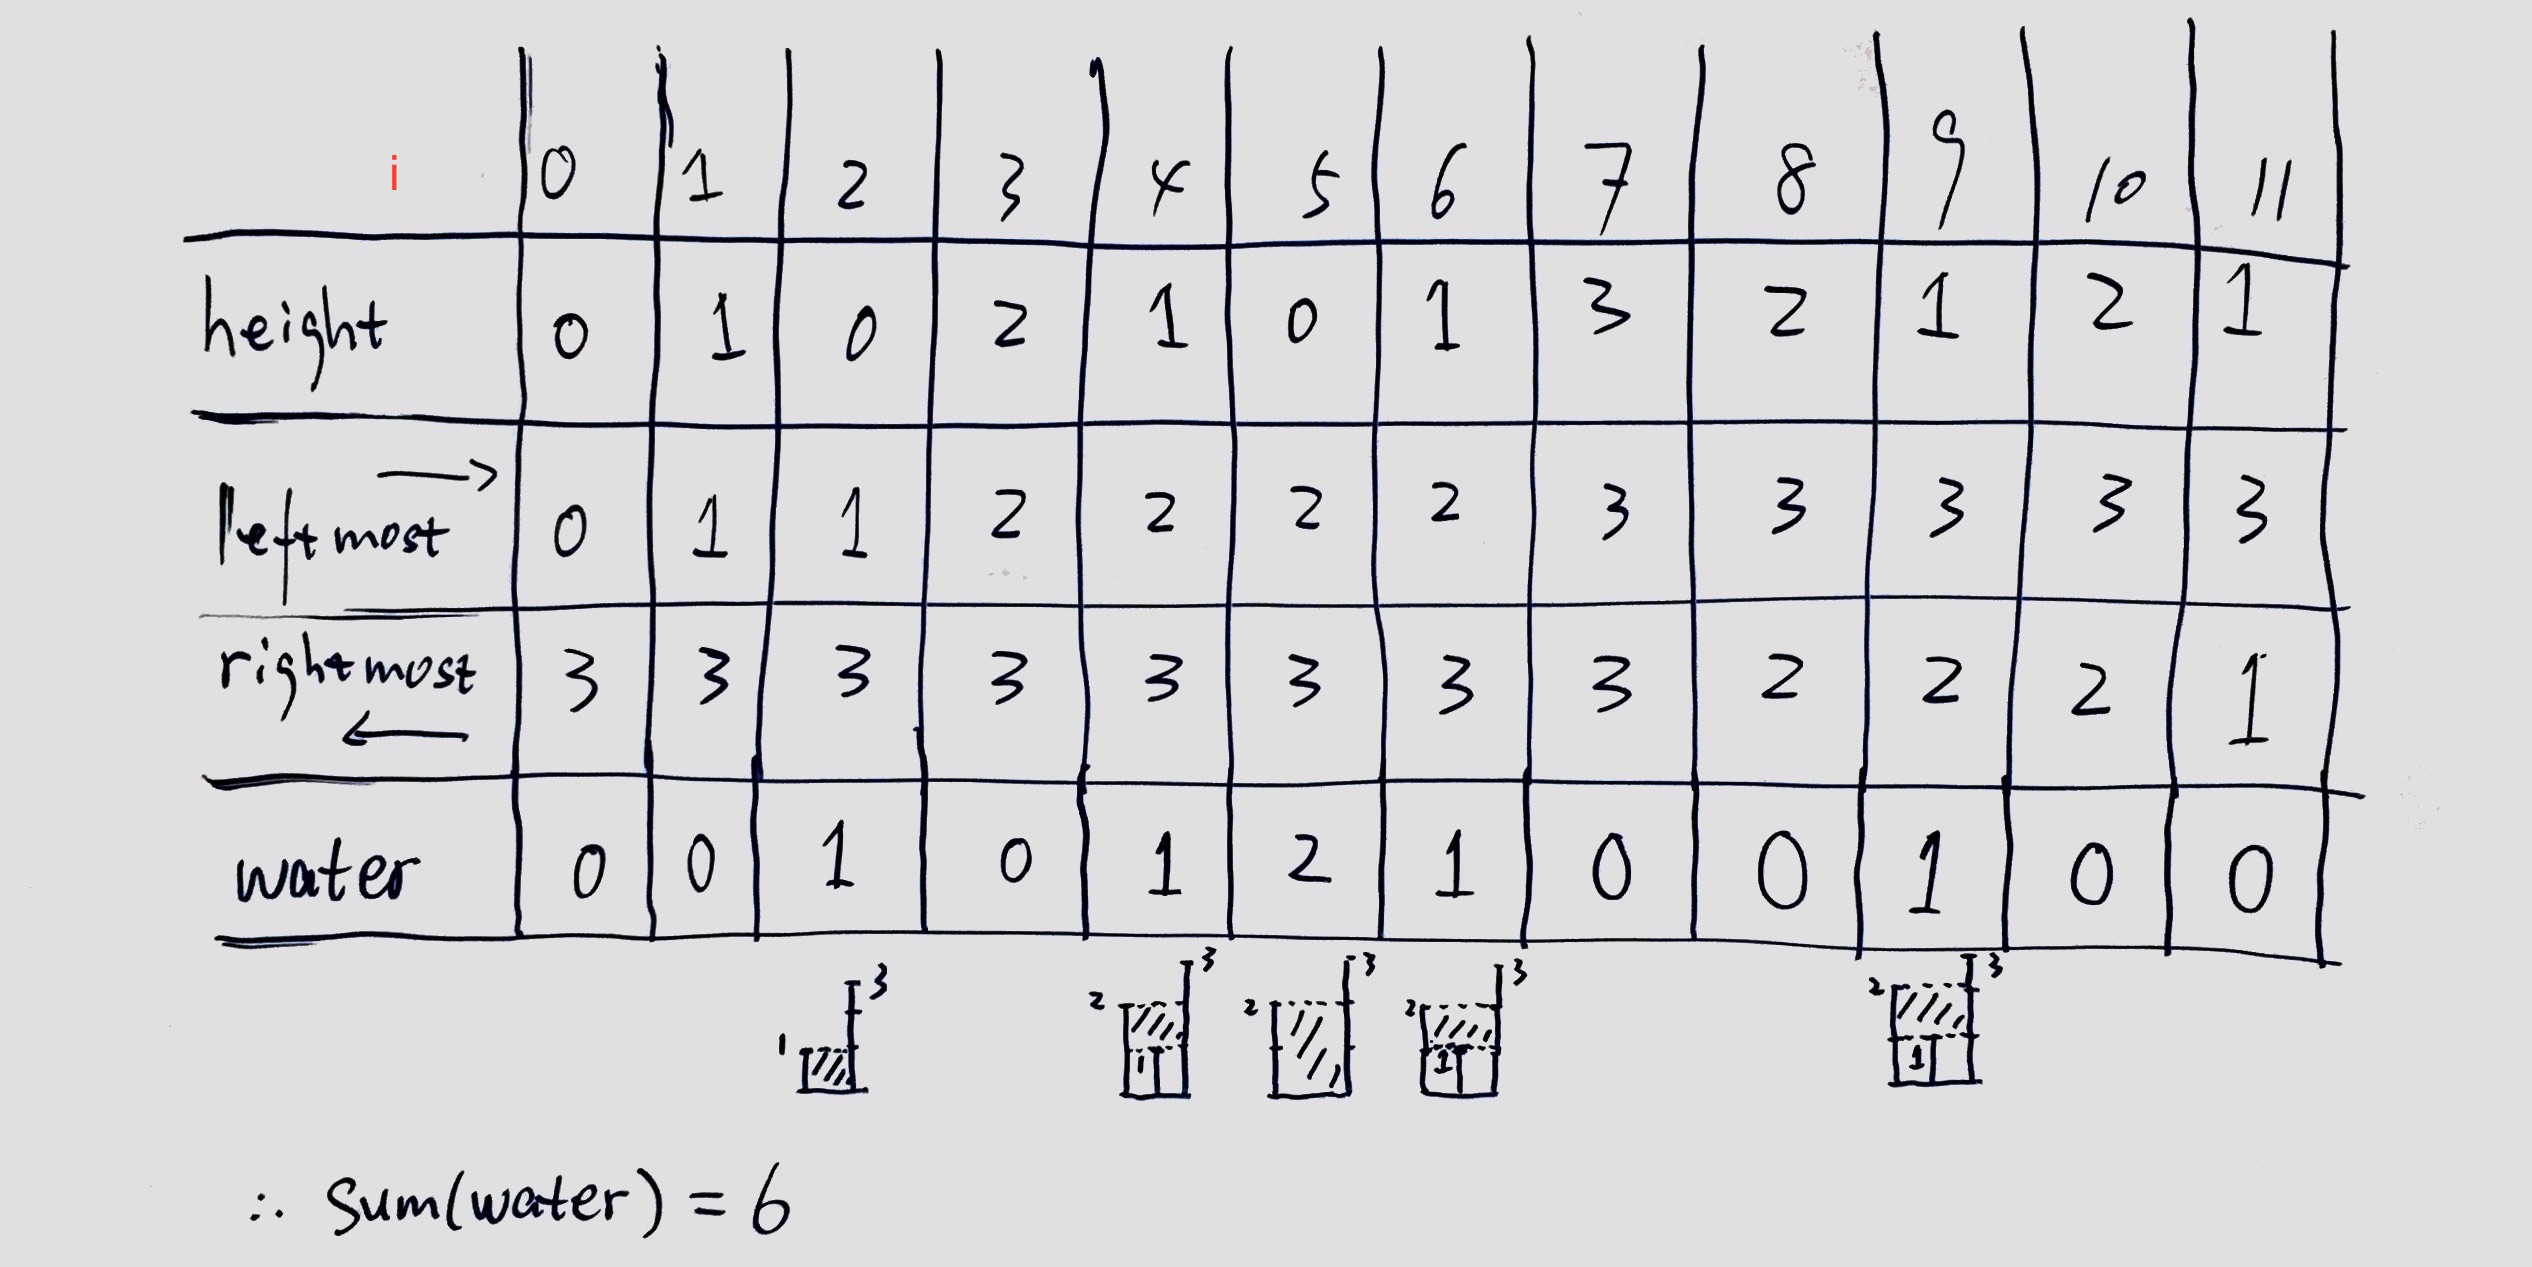 i 0 1 2 3 4 5 6 7 8 9 10 11
height 0 1 0 2 1 0 1 3 2 1 2 1
leftmost → 0 1 1 2 2 2 2 3 3 3 3 3
rightmost ← 3 3 3 3 3 3 3 3 2 2 2 1
water 0 0 1 0 1 2 1 0 0 1 0 0
1 3 2 3 1 2 3 2 3 1 2 3 1
∴ Sum(water) = 6